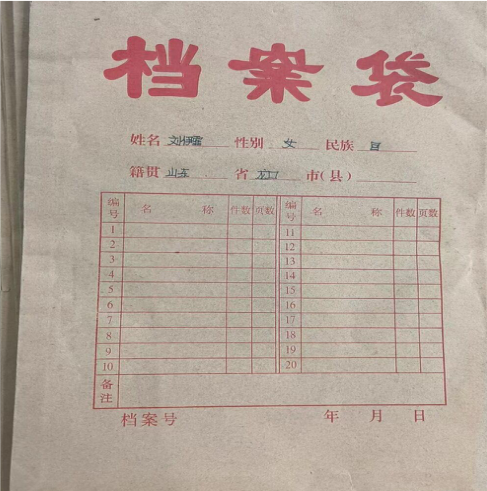 档案袋
姓名 刘 性别 女 民族
籍贯 山东 省 龙口 市(县)
编号 名称 件数 页数 编号 名称 件数 页数
1 11
2 12
3 13
4 14
5 15
6 16
7 17
8 18
9 19
10 20
备注
档案号 年 月 日